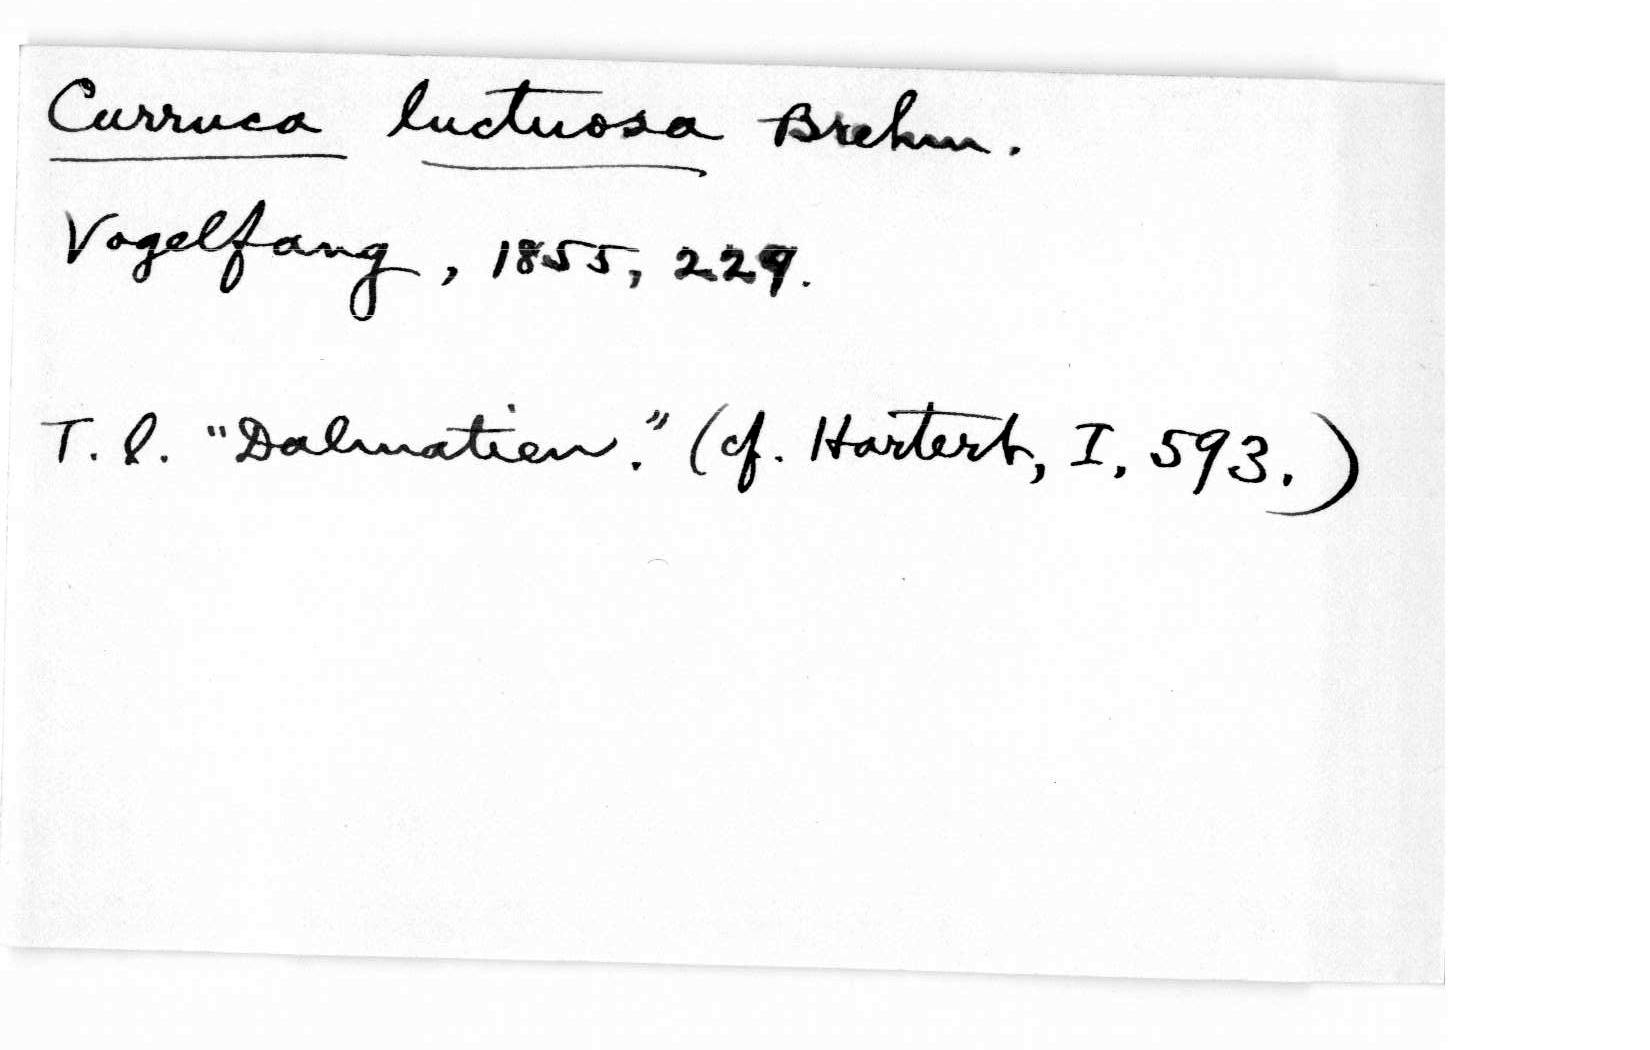 Curruca luctuosa Brehm.
Vogelfang, 1855, 229.
T. l. "Dalmatien." (cf. Hartert, I, 593.)